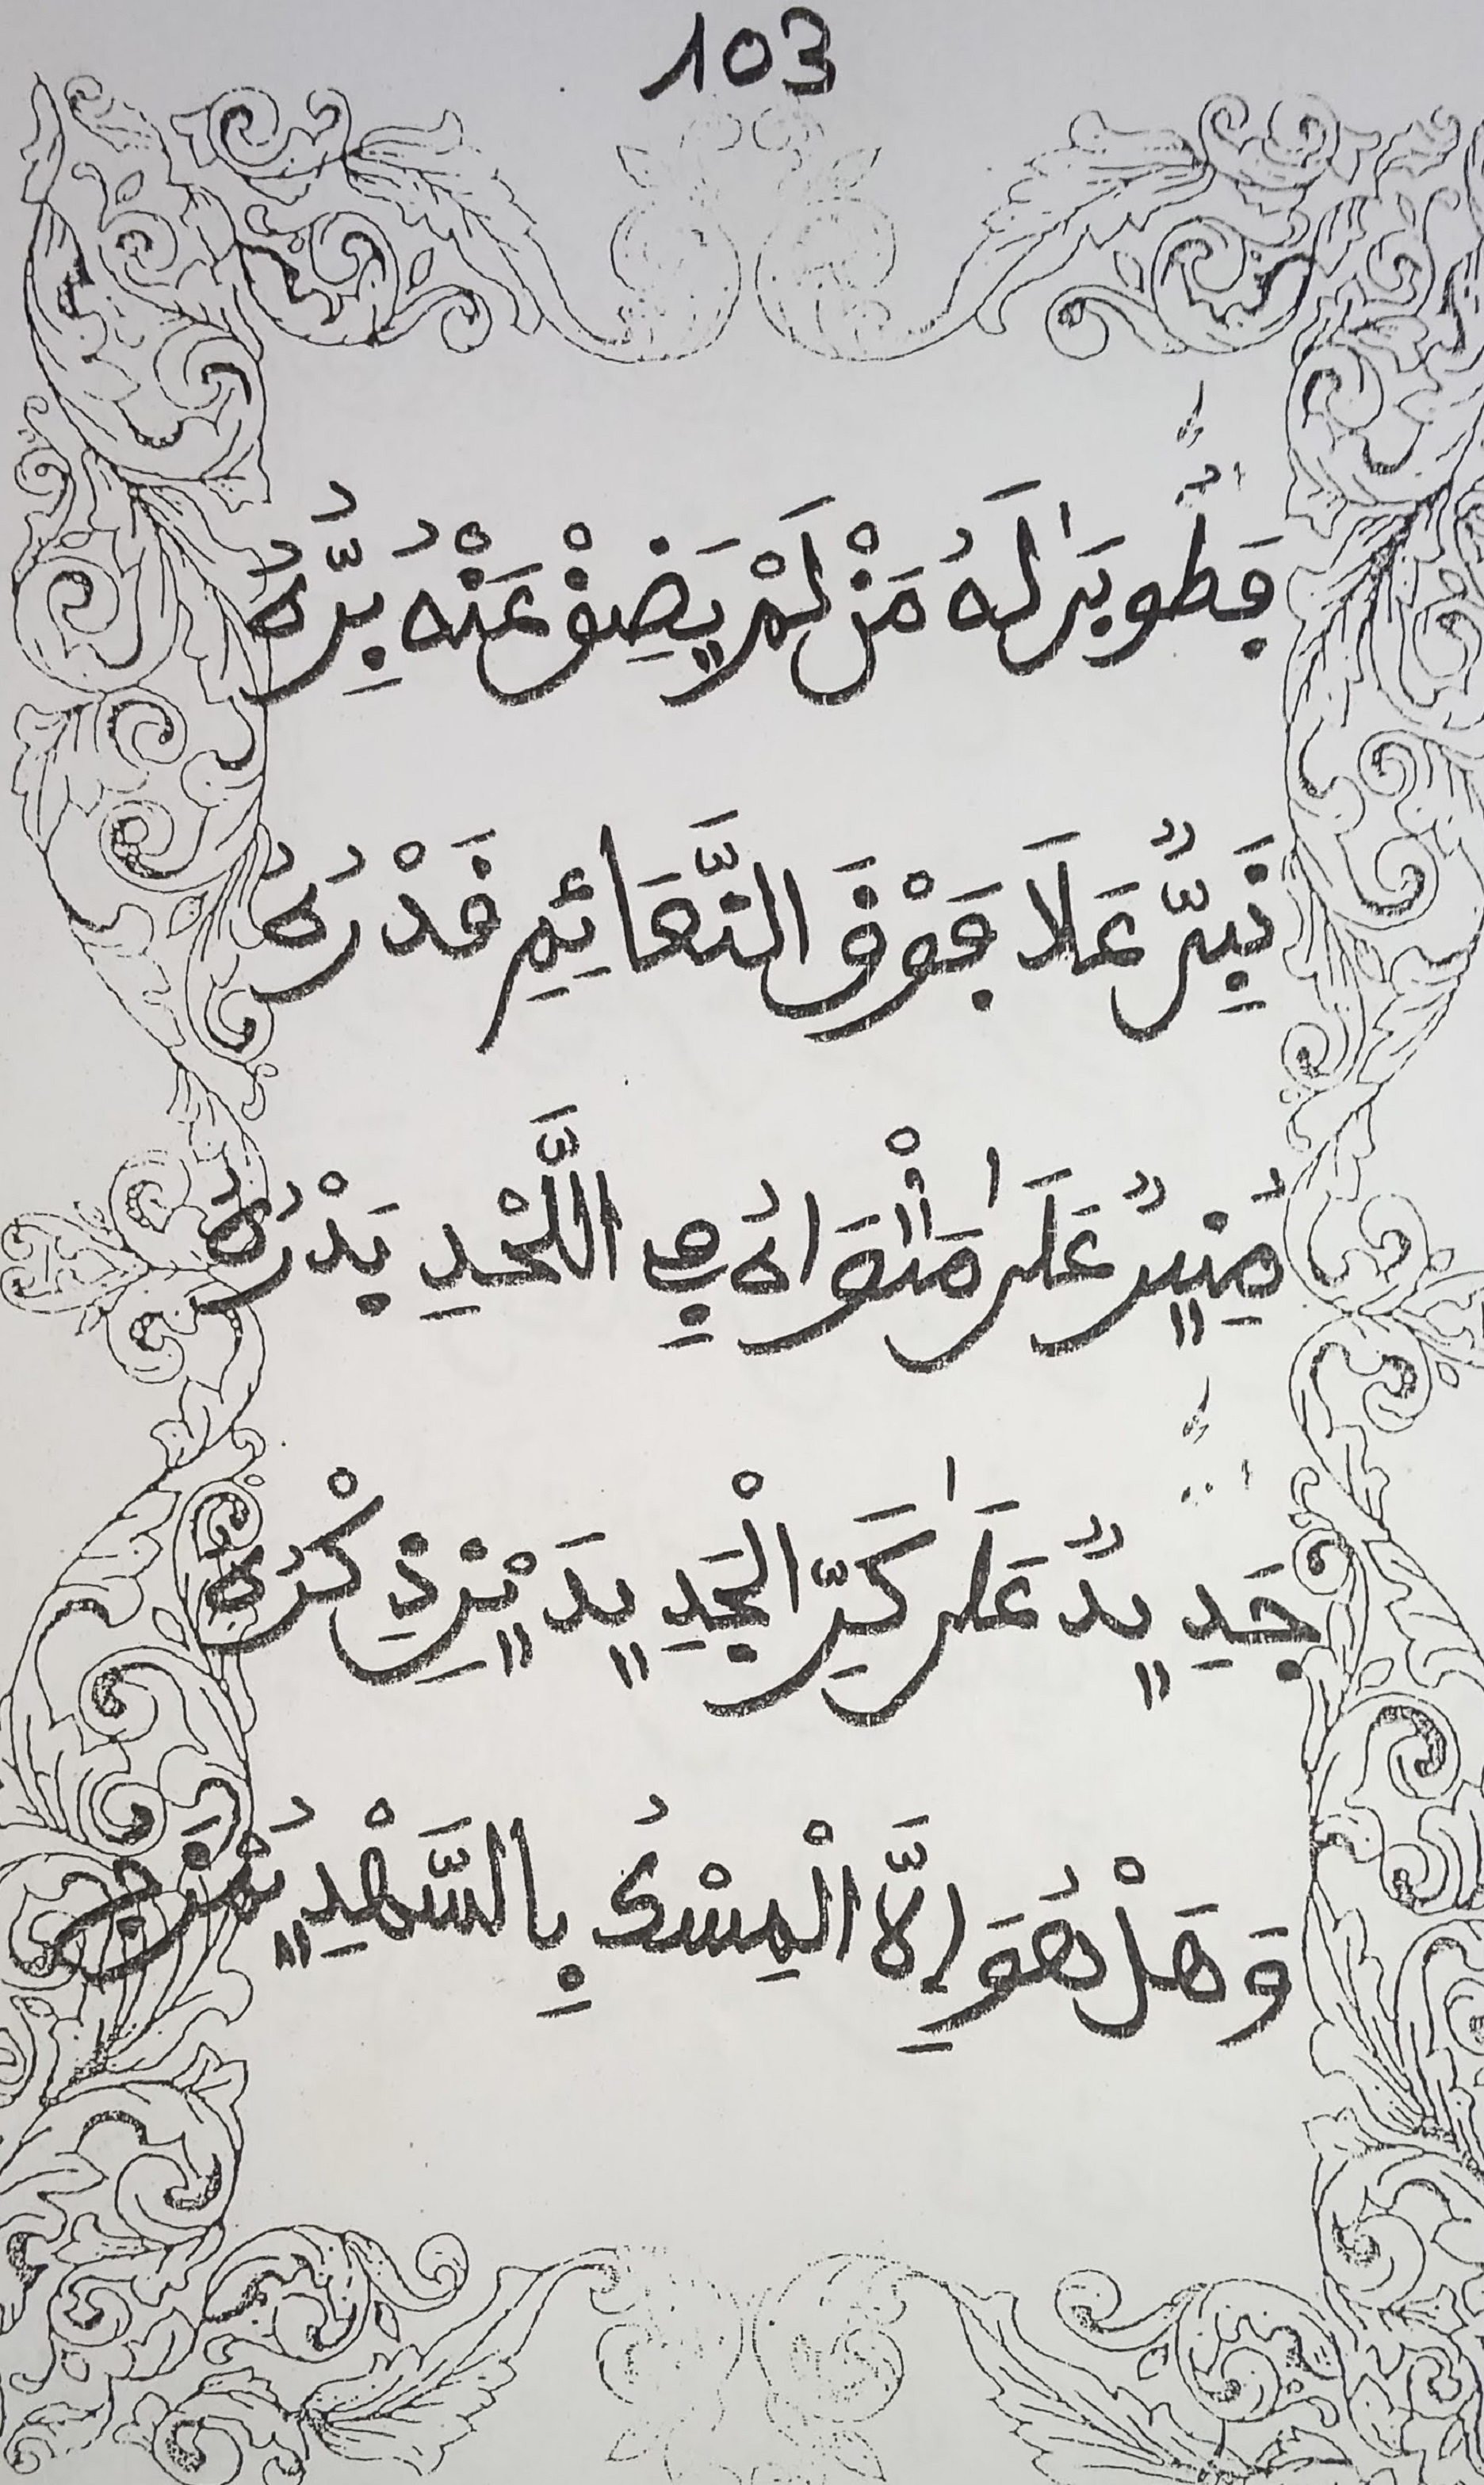 103
فَطُوبَىٰ لَهُ مَنْ لَمْ يَضِقْ عَنْهُ بِرُّهُ
نَبِيٌّ عَلَا فَوْقَ النَّعَائِمِ قَدْرُهُ
مُنِيرٌ عَلَىٰ مَثْوَاهُ فِي اللَّحْدِ بَدْرُهُ
جَدِيدٌ عَلَىٰ كَرِّ الْجَدِيدَيْنِ ذِكْرُهُ
وَهَلْ هُوَ إِلَّا الْمِسْكُ بِالشَّهْدِ يُمْزَجُ